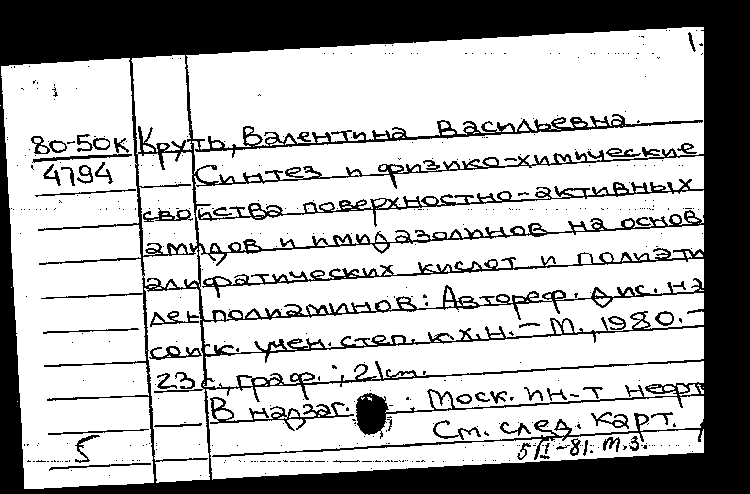 1.
80-50к Круть, Валентина Васильевна.
4794 Синтез и физико-химические
свойства поверхностно-активных
амидов и имидазолинов на основ
алифатических кислот и полиэти
ленполиаминов: Автореф. дис. на
соиск. учен. степ. к.х.н. - М., 1980. -
23 с., граф.; 21 см.
В надзаг. : Моск. ин-т нефт
См. след. карт.
5 5/I-81. М.З.